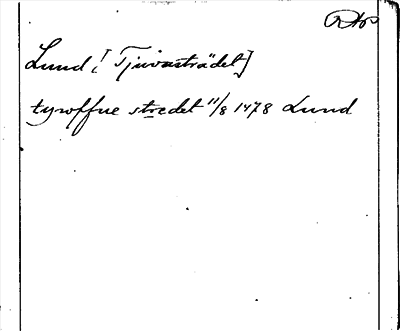 Lund [Tjuvasträdet]
tyroffue stredet 11/8 1478 Lund